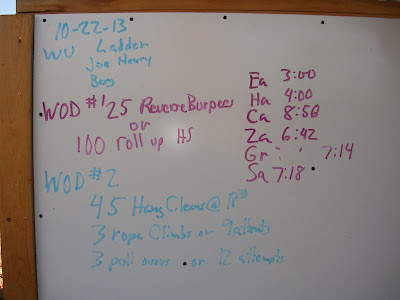 10-22-13
WU Ladder
Joe Henry
Berg
WOD #1 25 Reverse Burpees
or
100 roll up HS
WOD #2
45 Hang Cleans @
3 rope Climbs or 9 attempts
3 pull overs or 12 attempts
Ea 3:00
Ha 4:00
Ca 8:50
Za 6:42
Gr : 7:14
Sa 7:18